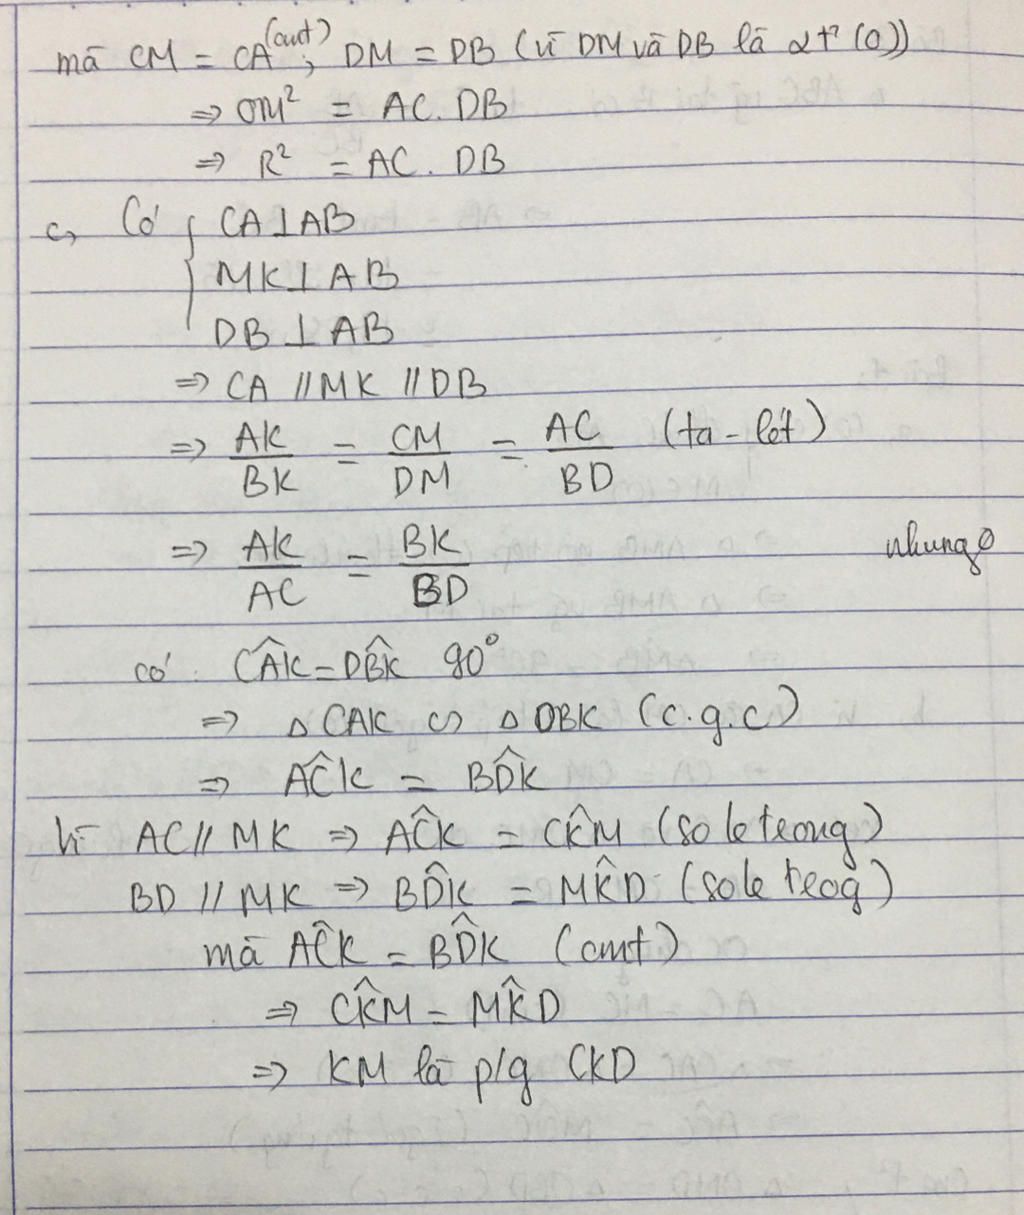 mà CM = CA (cmt); DM = DB (vì DM và DB là 2 t² (O))
⇒ OM² = AC. DB
⇒ R² = AC. DB
c, Có { CA ⊥ AB
MK ⊥ AB
DB ⊥ AB
⇒ CA // MK // DB
⇒ AK/BK = CM/DM = AC/BD (ta-lét)
⇒ AK/AC = BK/BD nhung
có: CÂK = DB̂K 90°
⇒ △ CAK ∽ △ DBK (c.g.c)
⇒ AĈK = BD̂K
Vì AC // MK ⇒ AĈK = CK̂M (so le trong)
BD // MK ⇒ BD̂K = MK̂D (so le trog)
mà AĈK = BD̂K (cmt)
⇒ CK̂M = MK̂D
⇒ KM là p/g CKD